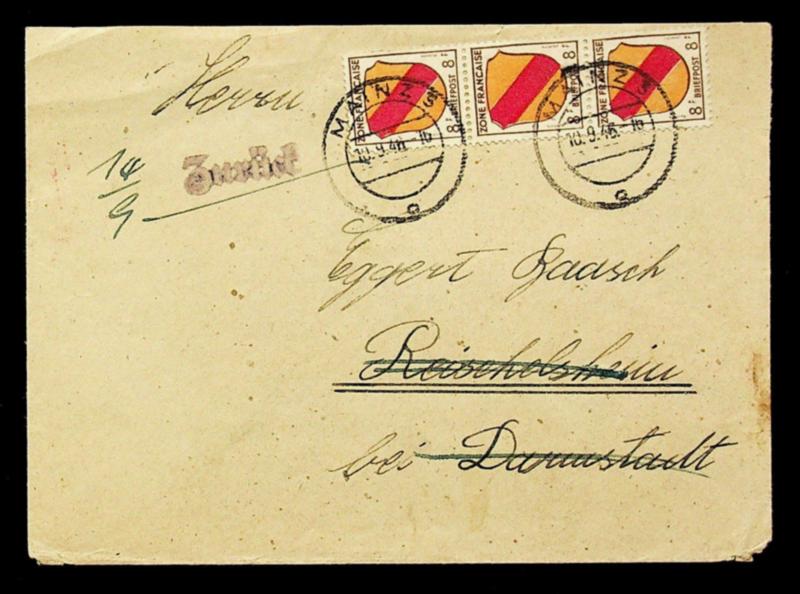 Herrn
ZONE FRANÇAISE 8 Pf BRIEFPOST
ZONE FRANÇAISE 8 Pf BRIEFPOST
ZONE FRANÇAISE 8 Pf BRIEFPOST
MAINZ
10.9.46-16
MAINZ
10.9.46-16
14/9
Zurück
Eggert Baasch
Reischolsheim
bei Darmstadt